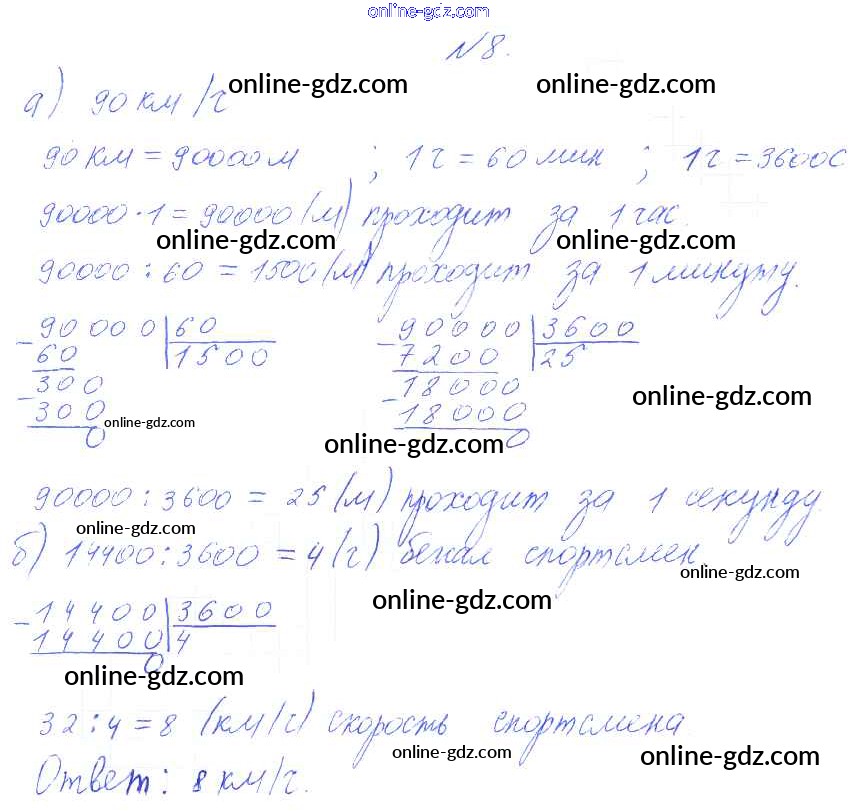 online-gdz.com
№8.
а) 90 км/ч online-gdz.com online-gdz.com
90 км = 90000 м ; 1 ч = 60 мин ; 1 ч = 3600 с
90000 · 1 = 90000 (м) проходит за 1 час.
online-gdz.com online-gdz.com
90000 : 60 = 1500 (м) проходит за 1 минуту.
- 90000 | 60 - 90000 | 3600
60 | 1500 7200 | 25
- 300 - 18000
300 18000
0 0
online-gdz.com online-gdz.com online-gdz.com
90000 : 3600 = 25 (м) проходит за 1 секунду.
online-gdz.com
б) 14400 : 3600 = 4 (ч) бежал спортсмен
online-gdz.com
- 14400 | 3600 online-gdz.com
14400 | 4
0
online-gdz.com
32 : 4 = 8 (км/ч) скорость спортсмена
online-gdz.com online-gdz.com
Ответ: 8 км/ч.